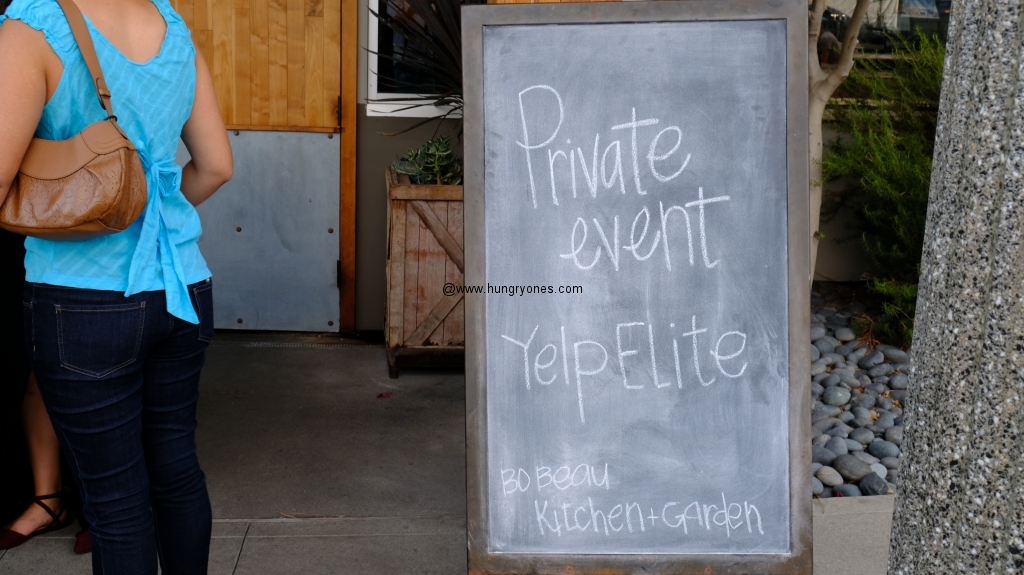 Private
event
@www.hungryones.com
Yelp ELite
BO Beau
Kitchen+Garden